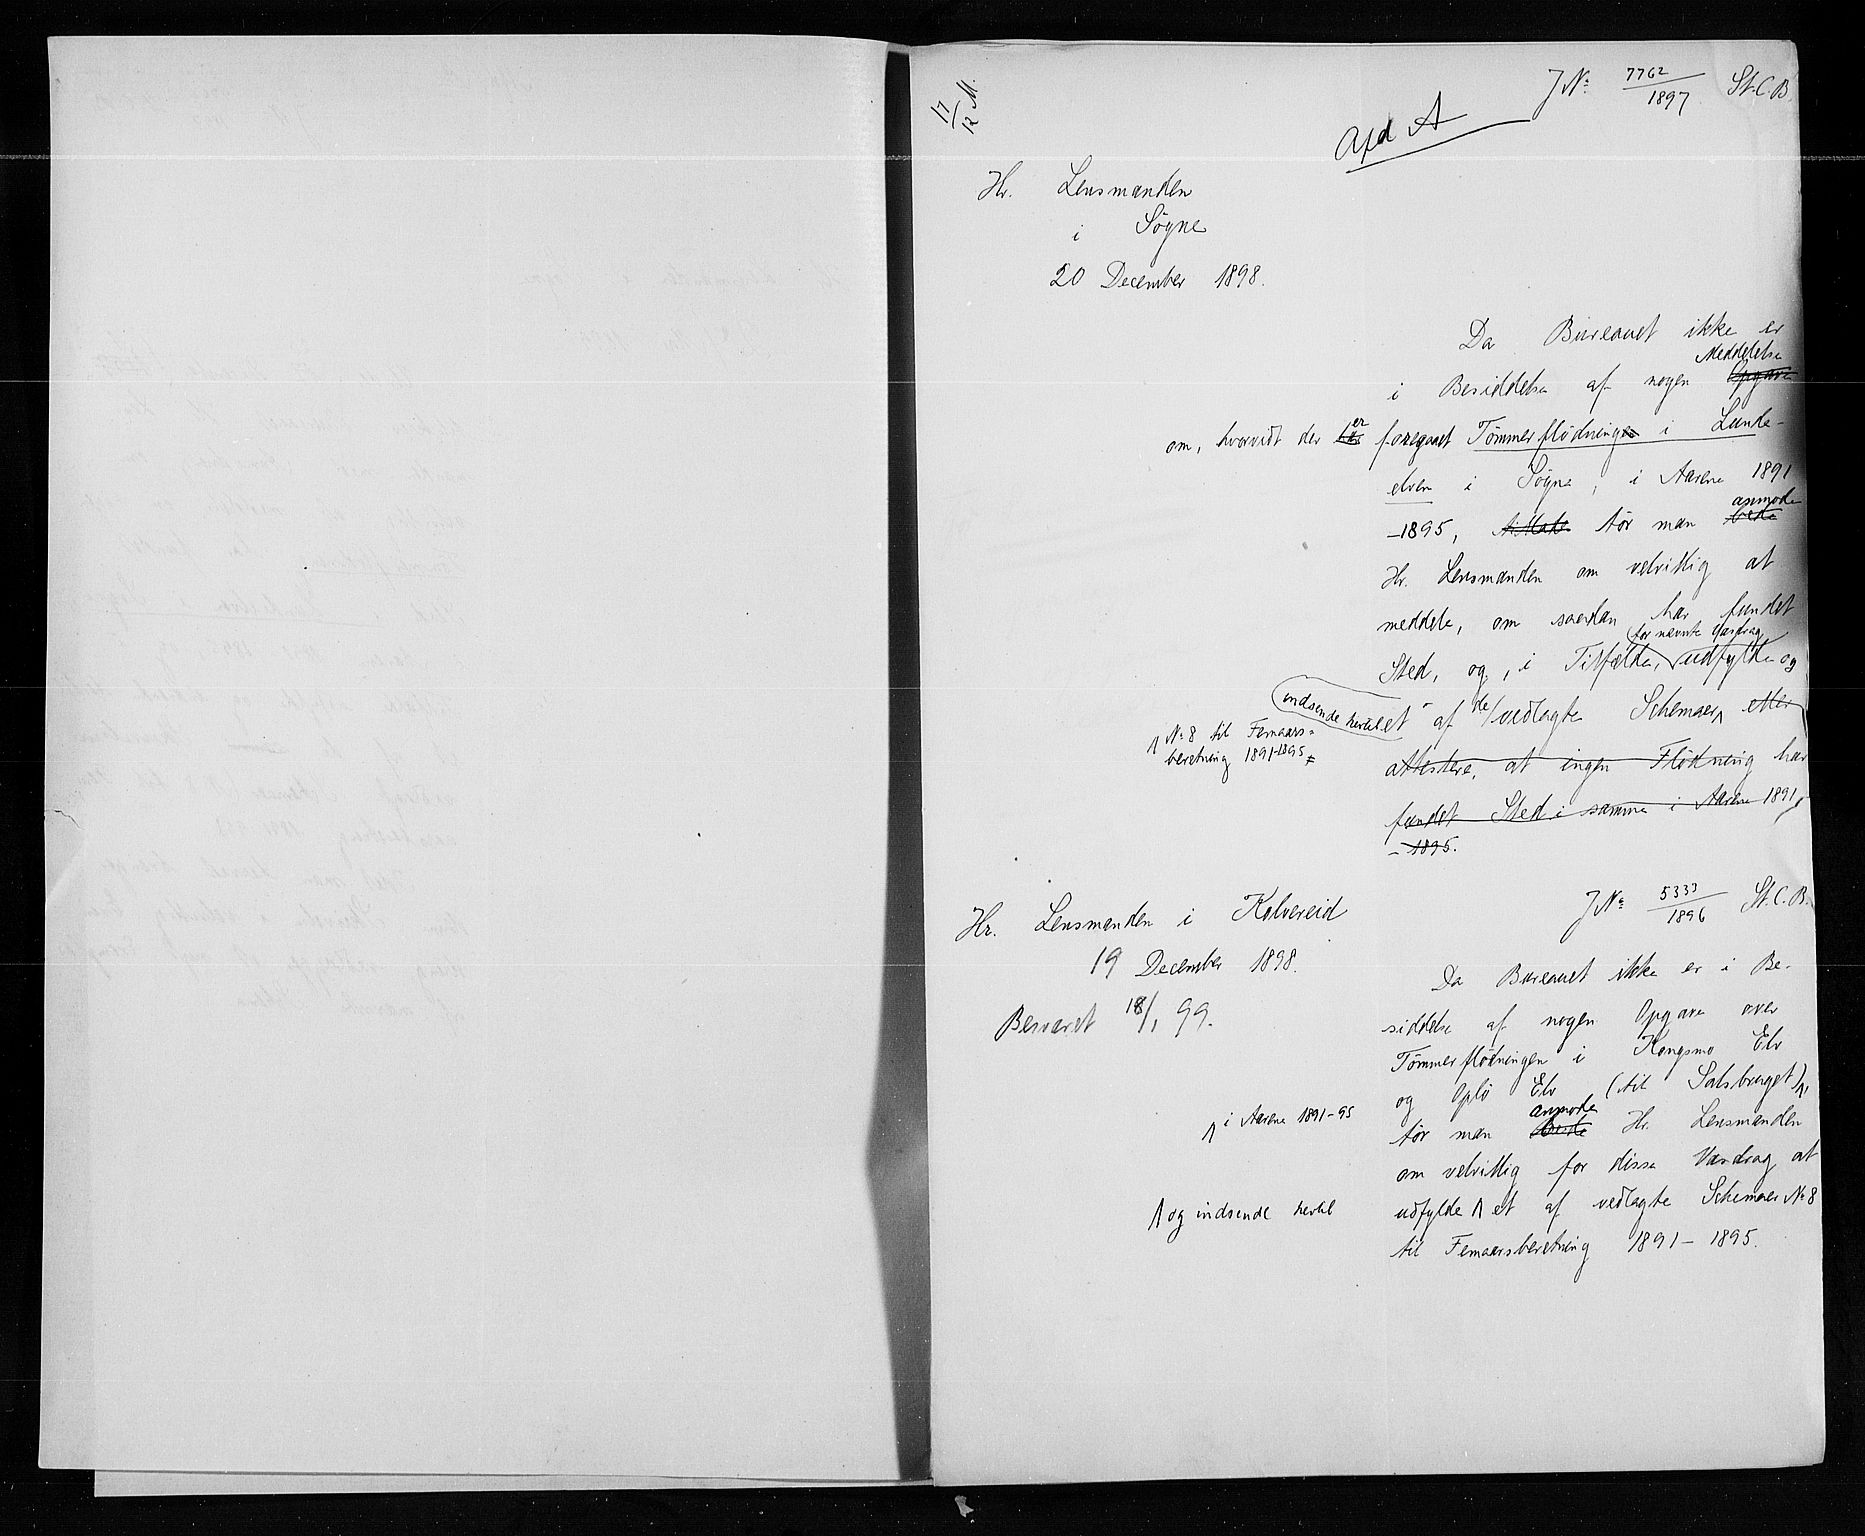 17/12 M.
J № 7762/1897 St. C. B.
Afd A
Hr. Lensmanden
i Søgne
20 December 1898.
Da Bureauet ikke er
Meddelelse
i Besiddelse af nogen Opgave
er
om, hvorvidt der har foregaaet Tømmerflødningen i Lunde-
elven i Søgne, i Aarene 1891
anmode
-1895, tillade tør man bede
Hr. Lensmanden om velvillig at
meddele, om saadan har fundet
for nævnte Vasdrag
Sted, og, i Tilfælde, udfylde og
indsende hertil et af de vedlagte Schemaer, eller
№ 8 til Femaars-
beretning 1891-1895
attestere, at ingen Flødning har
fundet Sted i samme i Aarene 1891
- 1895.
J № 5333/1896 St. C. B.
Hr. Lensmanden i Kolvereid
19 December 1898.
Besvaret 18/1 99.
Da Bureauet ikke er i Be-
siddelse af nogen Opgave over
Tømmerflødningen i Kongsmo Elv
og Oplø Elv (til Salsbruget),
i Aarene 1891-95
anmode
tør man bede Hr. Lensmanden
om velvillig for disse Vasdrag at
udfylde et af vedlagte Schemaer № 8
og indsende hertil
til Femaarsberetning 1891 - 1895.